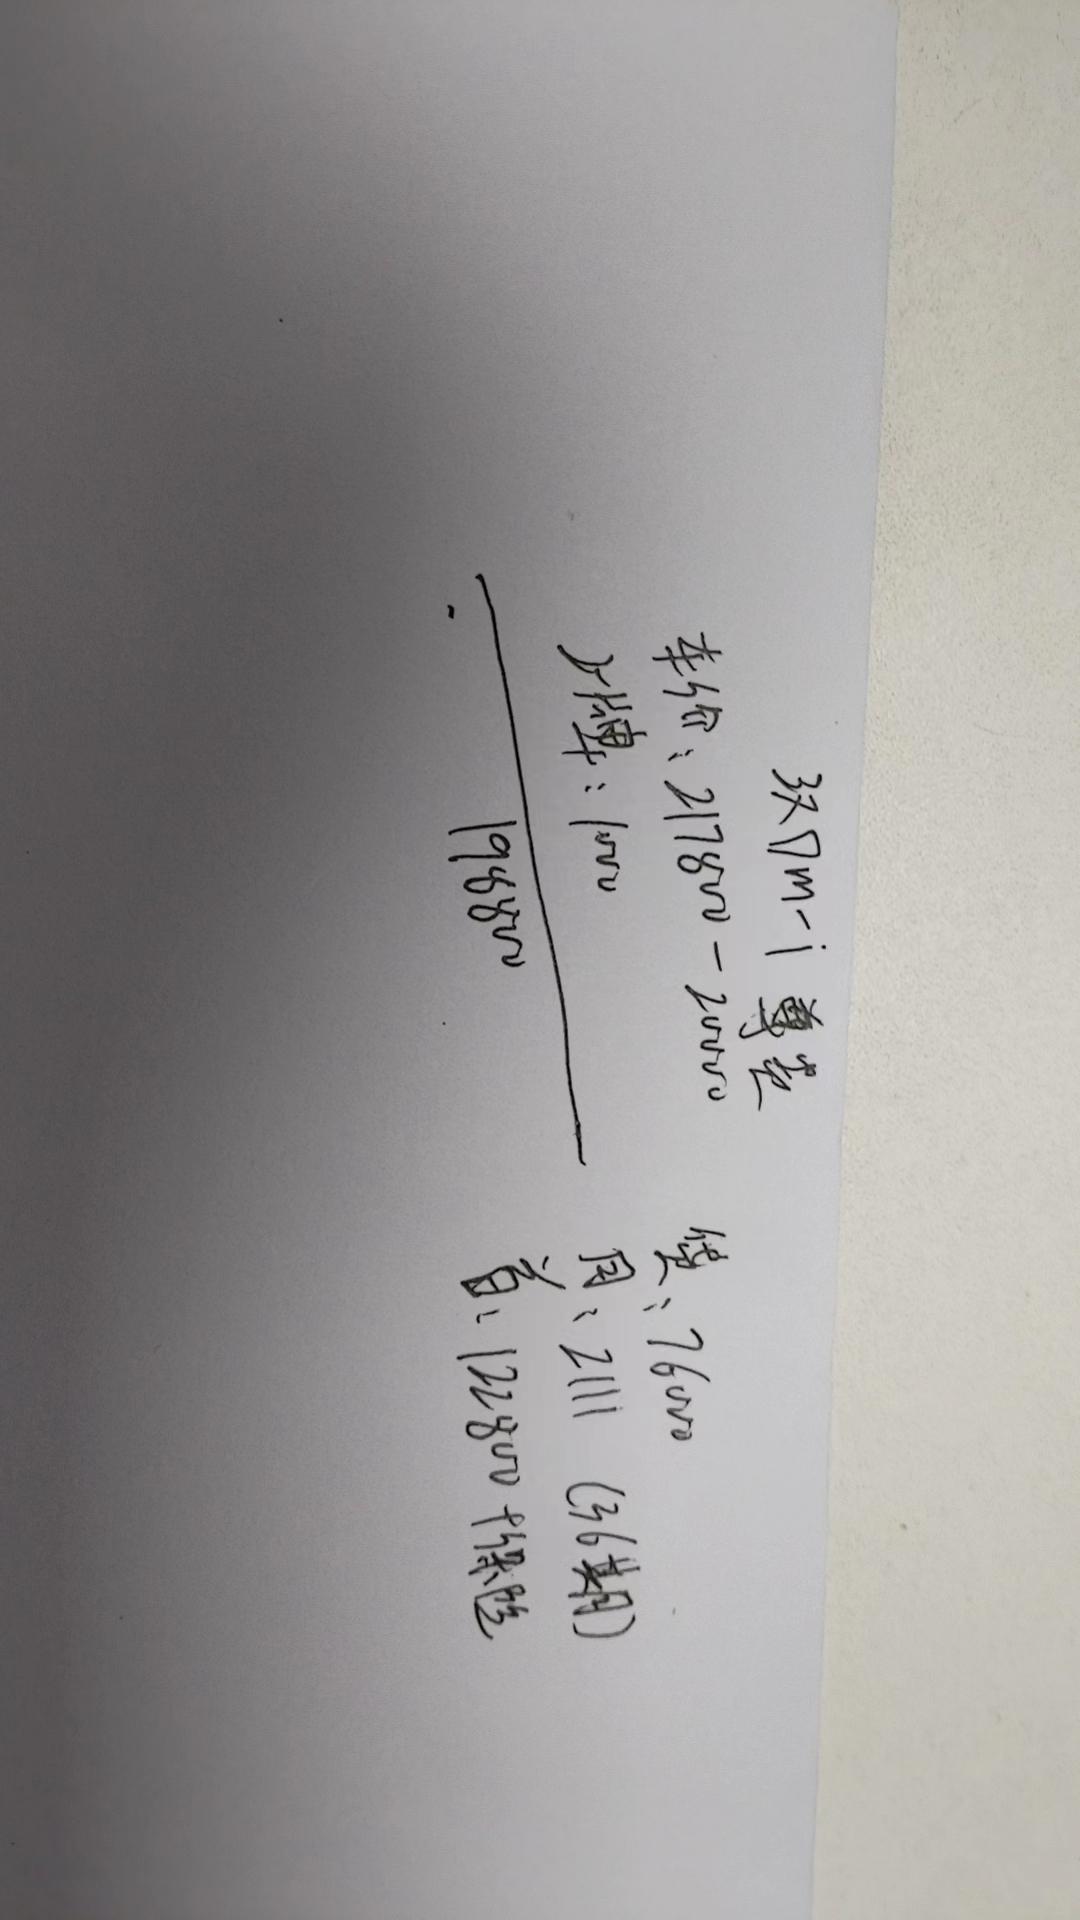 汉Dm-i 尊荣
车价：217800-20000
上牌：1000
198800
贷：76000
月：2111 (36期)
首：122800+保险